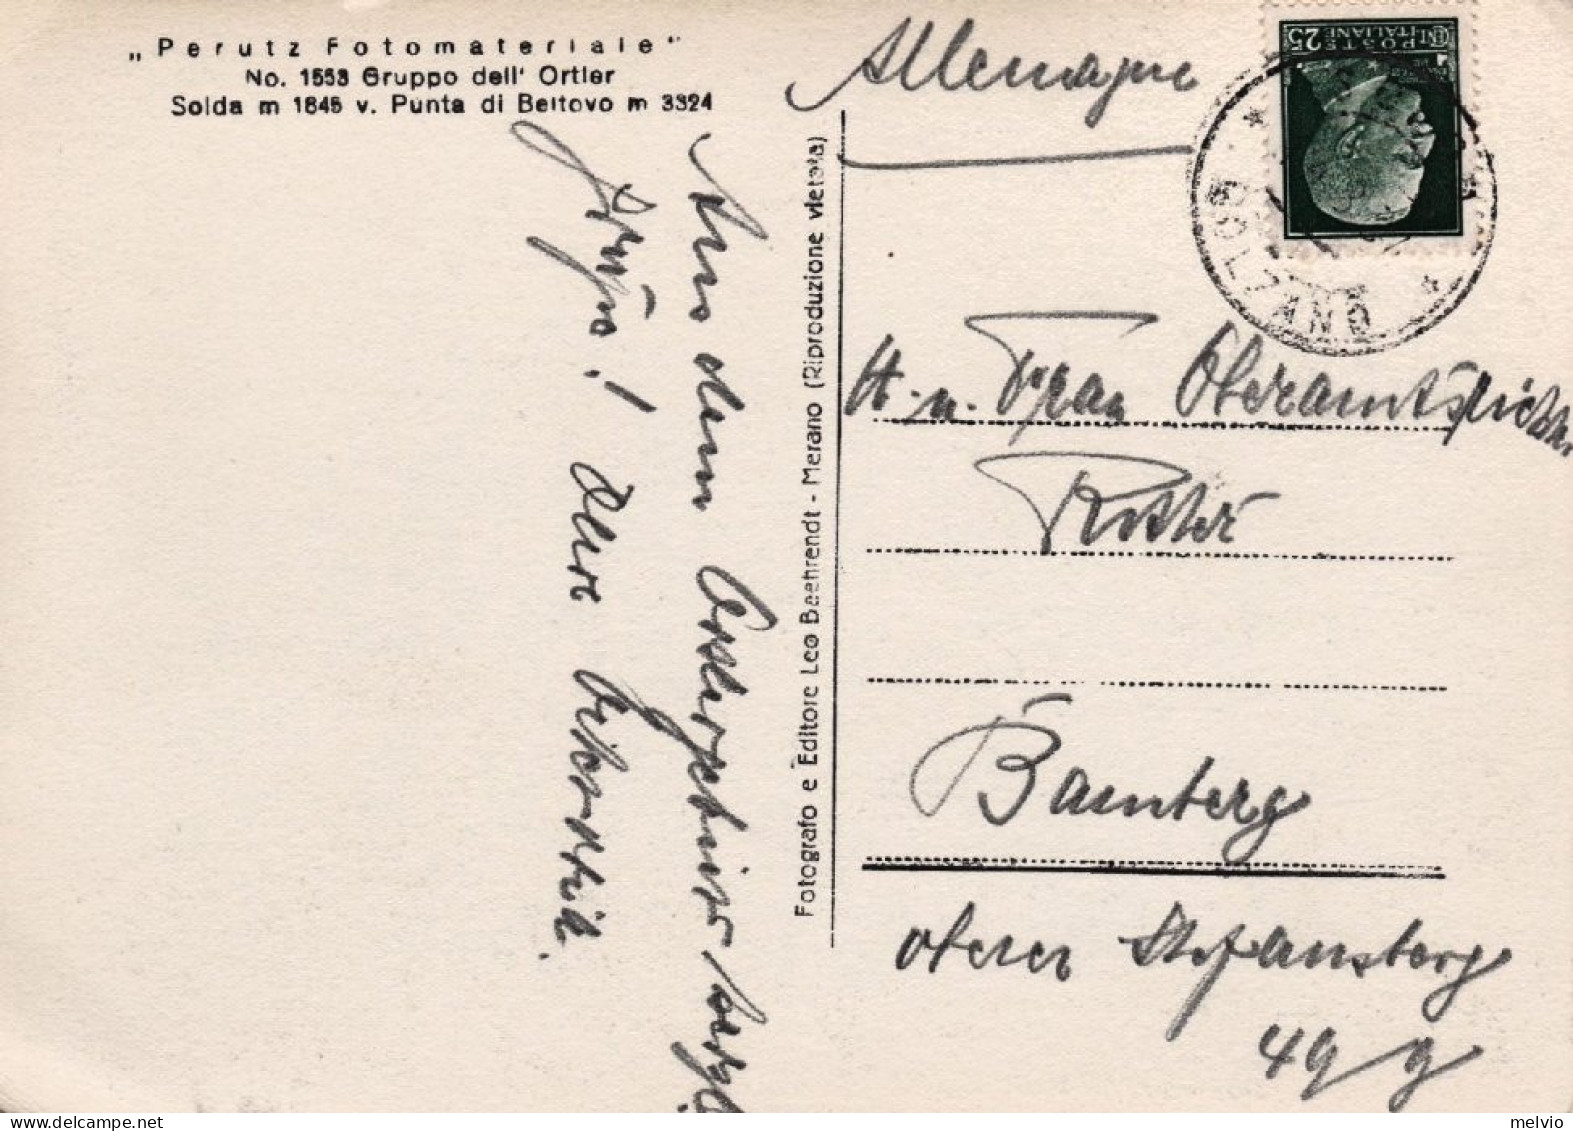 „Perutz Fotomateriale"
No. 1553 Gruppo dell' Ortler
Solda m 1845 v. Punta di Beltovo m 3324
Allemagne
25 CENT
POSTE ITALIANE
BOLZANO
H. u. Frau Oberamtsrichter
Bamberg
oberer Stefansberg
49 g
Fotografo e Editore Leo Baehrendt - Merano (Riproduzione vietata)
Aus dem Ortlergebiet
Grüße!
melvio